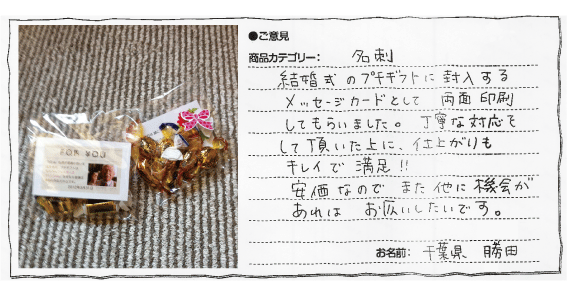 FOR YOU
●ご意見
商品カテゴリー： 名刺
結婚式のプチギフトに封入する
メッセージカードとして 両面印刷
してもらいました。丁寧な対応を
して頂いた上に、仕上がりも
キレイで 満足!!
安価なので また他に機会が
あれば お伝いしたいです。
お名前： 千葉県、勝田